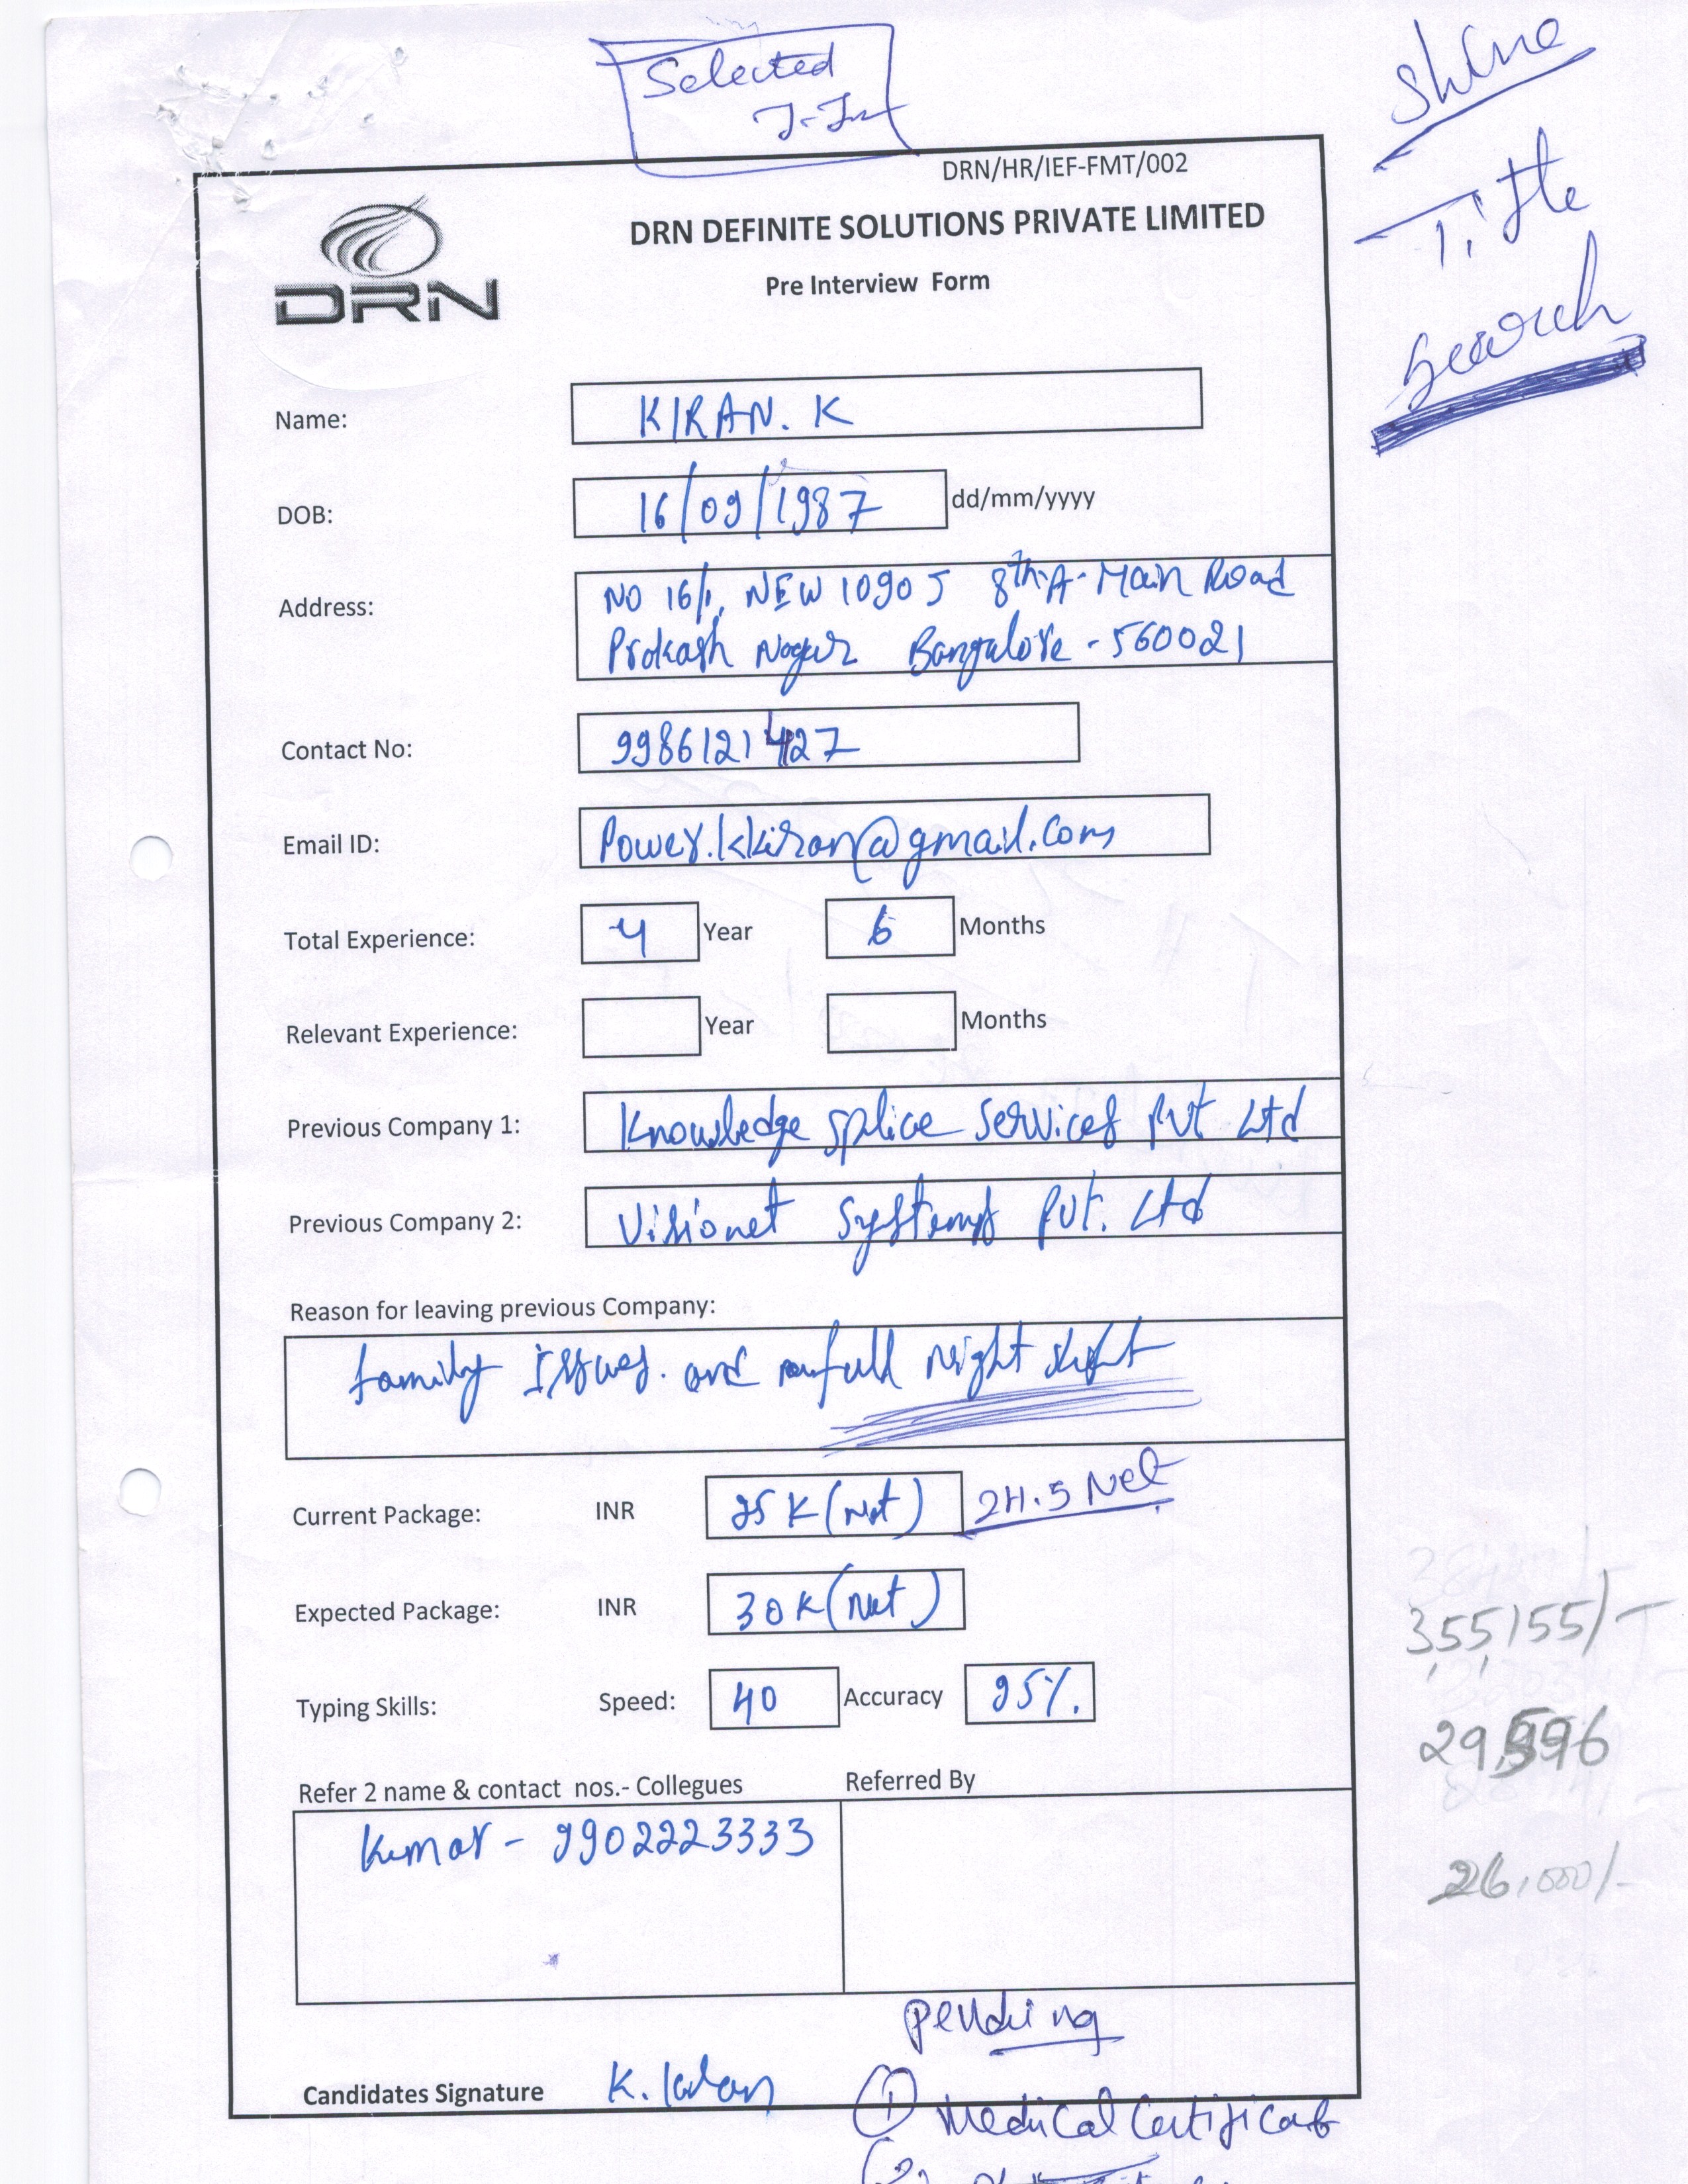 Selected
shine
Title
Search
DRN/HR/IEF-FMT/002
DRN
DRN DEFINITE SOLUTIONS PRIVATE LIMITED
Pre Interview Form
Name: KIRAN. K
DOB: 16/09/1987 dd/mm/yyyy
Address: NO 16/1, NEW 10905 8th A- Main Road
Prakash Nagar Bangalore - 560021
Contact No: 9986121427
Email ID: Power.kkiran@gmail.com
Total Experience: 4 Year 6 Months
Relevant Experience: Year Months
Previous Company 1: Knowledge splice services Pvt Ltd
Previous Company 2: Visionet Systems Pvt. Ltd
Reason for leaving previous Company:
family Issues. and full night shift
Current Package: INR 25 K (Net) 24.5 Net
Expected Package: INR 30 K (Net)
355,155/-
Typing Skills: Speed: 40 Accuracy 95%.
29,596
Refer 2 name & contact nos.- Collegues Referred By
Kumar - 9902223333
26,000/-
pending
Candidates Signature K. Kiran
① Medical Certificate